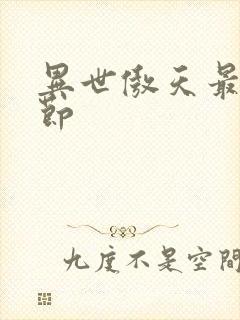 異世傲天最
節
九度不是空間